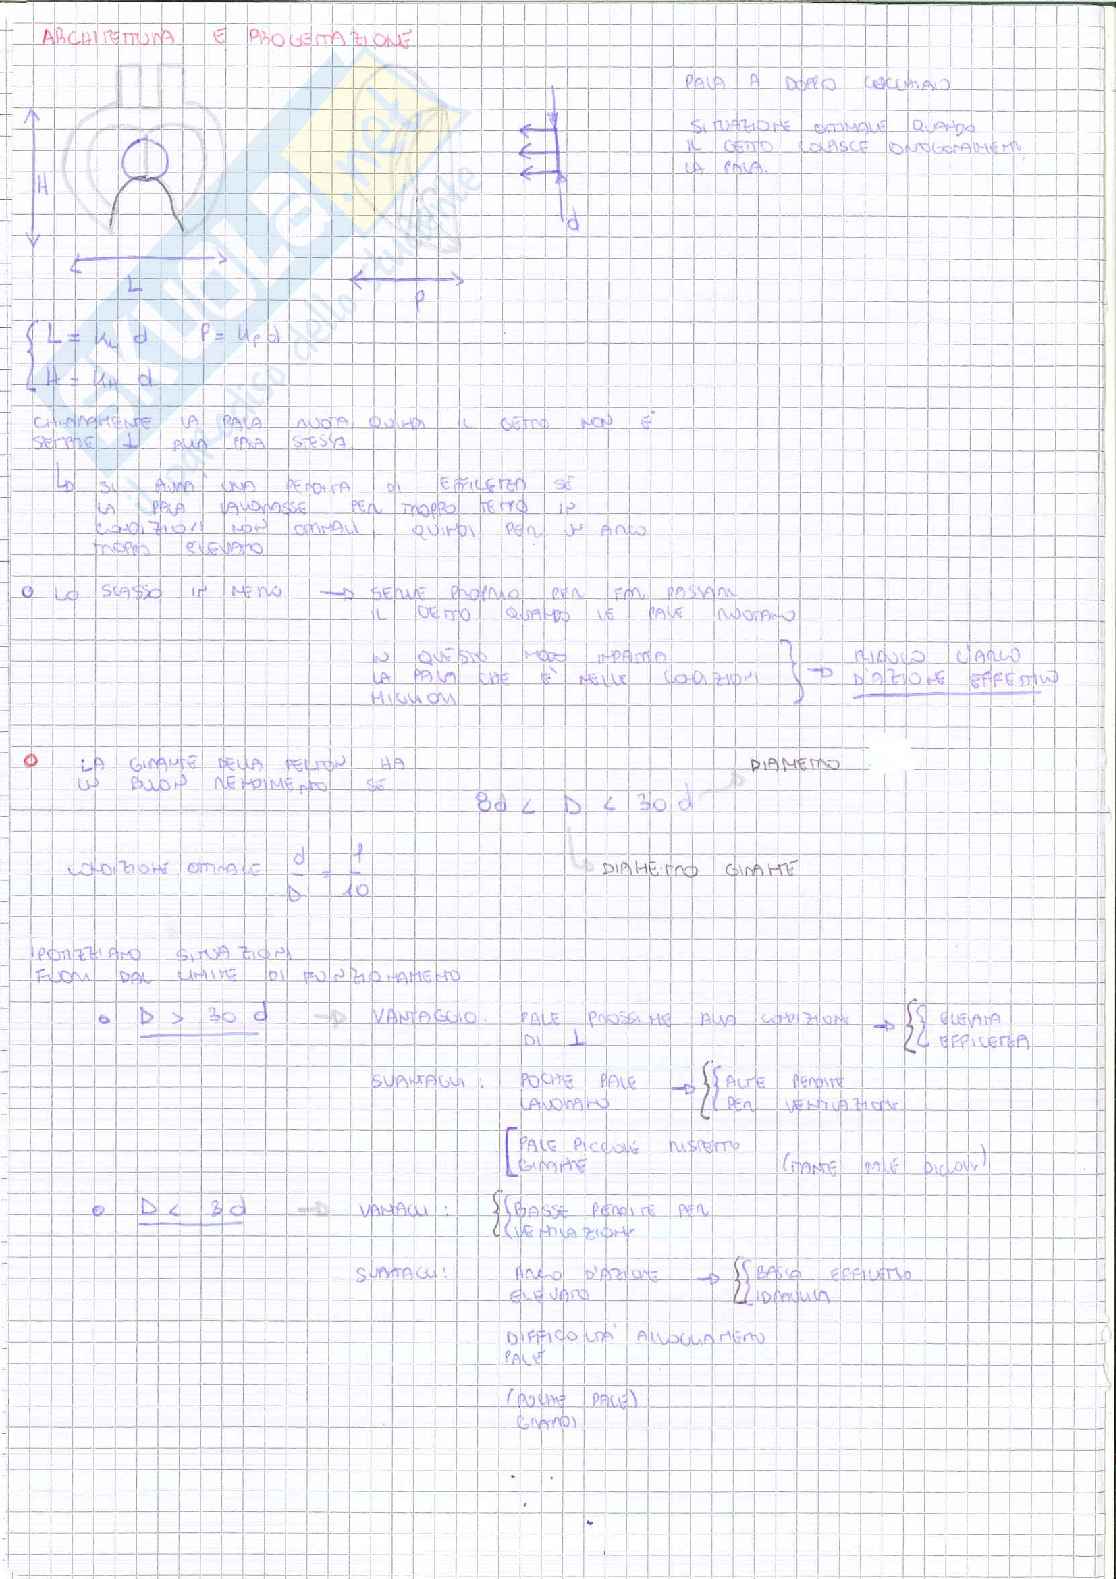 ARCHITETTURA E PROGETTAZIONE
PALA A DOPPIO CUCCHIAIO
SITUAZIONE OTTIMALE QUANDO
IL GETTO COLPISCE ORTOGONALMENTE
LA PALA.
H
d
L
P
L = KL d P = KP d
H = KH d
CHIARAMENTE LA PALA RUOTA, QUINDI IL GETTO NON È
SEMPRE ⊥ ALLA PALA STESSA
SI AVRÀ UNA PERDITA DI EFFICIENZA SE
LA PALA LAVORASSE PER TROPPO TEMPO IN
CONDIZIONI NON OTTIMALI, QUINDI PER UN ARCO
TROPPO ELEVATO
LO SCASSO IN MEZZO → SERVE PROPRIO PER FAR PASSARE
IL GETTO QUANDO LE PALE RUOTANO
IN QUESTO MODO IMPATTA
LA PALA CHE È NELLE CONDIZIONI
MIGLIORI
→ RIDUCO L'ARCO
D'AZIONE EFFETTIVO
LA GIRANTE DELLA PELTON HA
UN BUON RENDIMENTO SE
DIAMETRO
8d < D < 30 d
CONDIZIONE OTTIMALE d/D = 1/10
DIAMETRO GIRANTE
IPOTIZZIAMO SITUAZIONI
FUORI DAL LIMITE DI FUNZIONAMENTO
D > 30 d → VANTAGGIO: PALE PROSSIME ALLA CONDIZIONE → ELEVATA
DI ⊥ EFFICIENZA
SVANTAGGI: POCHE PALE → ALTE PERDITE
LAVORANO PER VENTILAZIONE
PALE PICCOLE RISPETTO
GIRANTE (TANTE PALE PICCOLE)
D < 8 d → VANTAGGI: BASSE PERDITE PER
VENTILAZIONE
SVANTAGGI: ARCO D'AZIONE → BASSA EFFICIENZA
ELEVATO IDRAULICA
DIFFICOLTÀ ALLOGGIAMENTO
PALE
(POCHE PALE)
GRANDI
SKUOLA.net
il paradiso dello studente